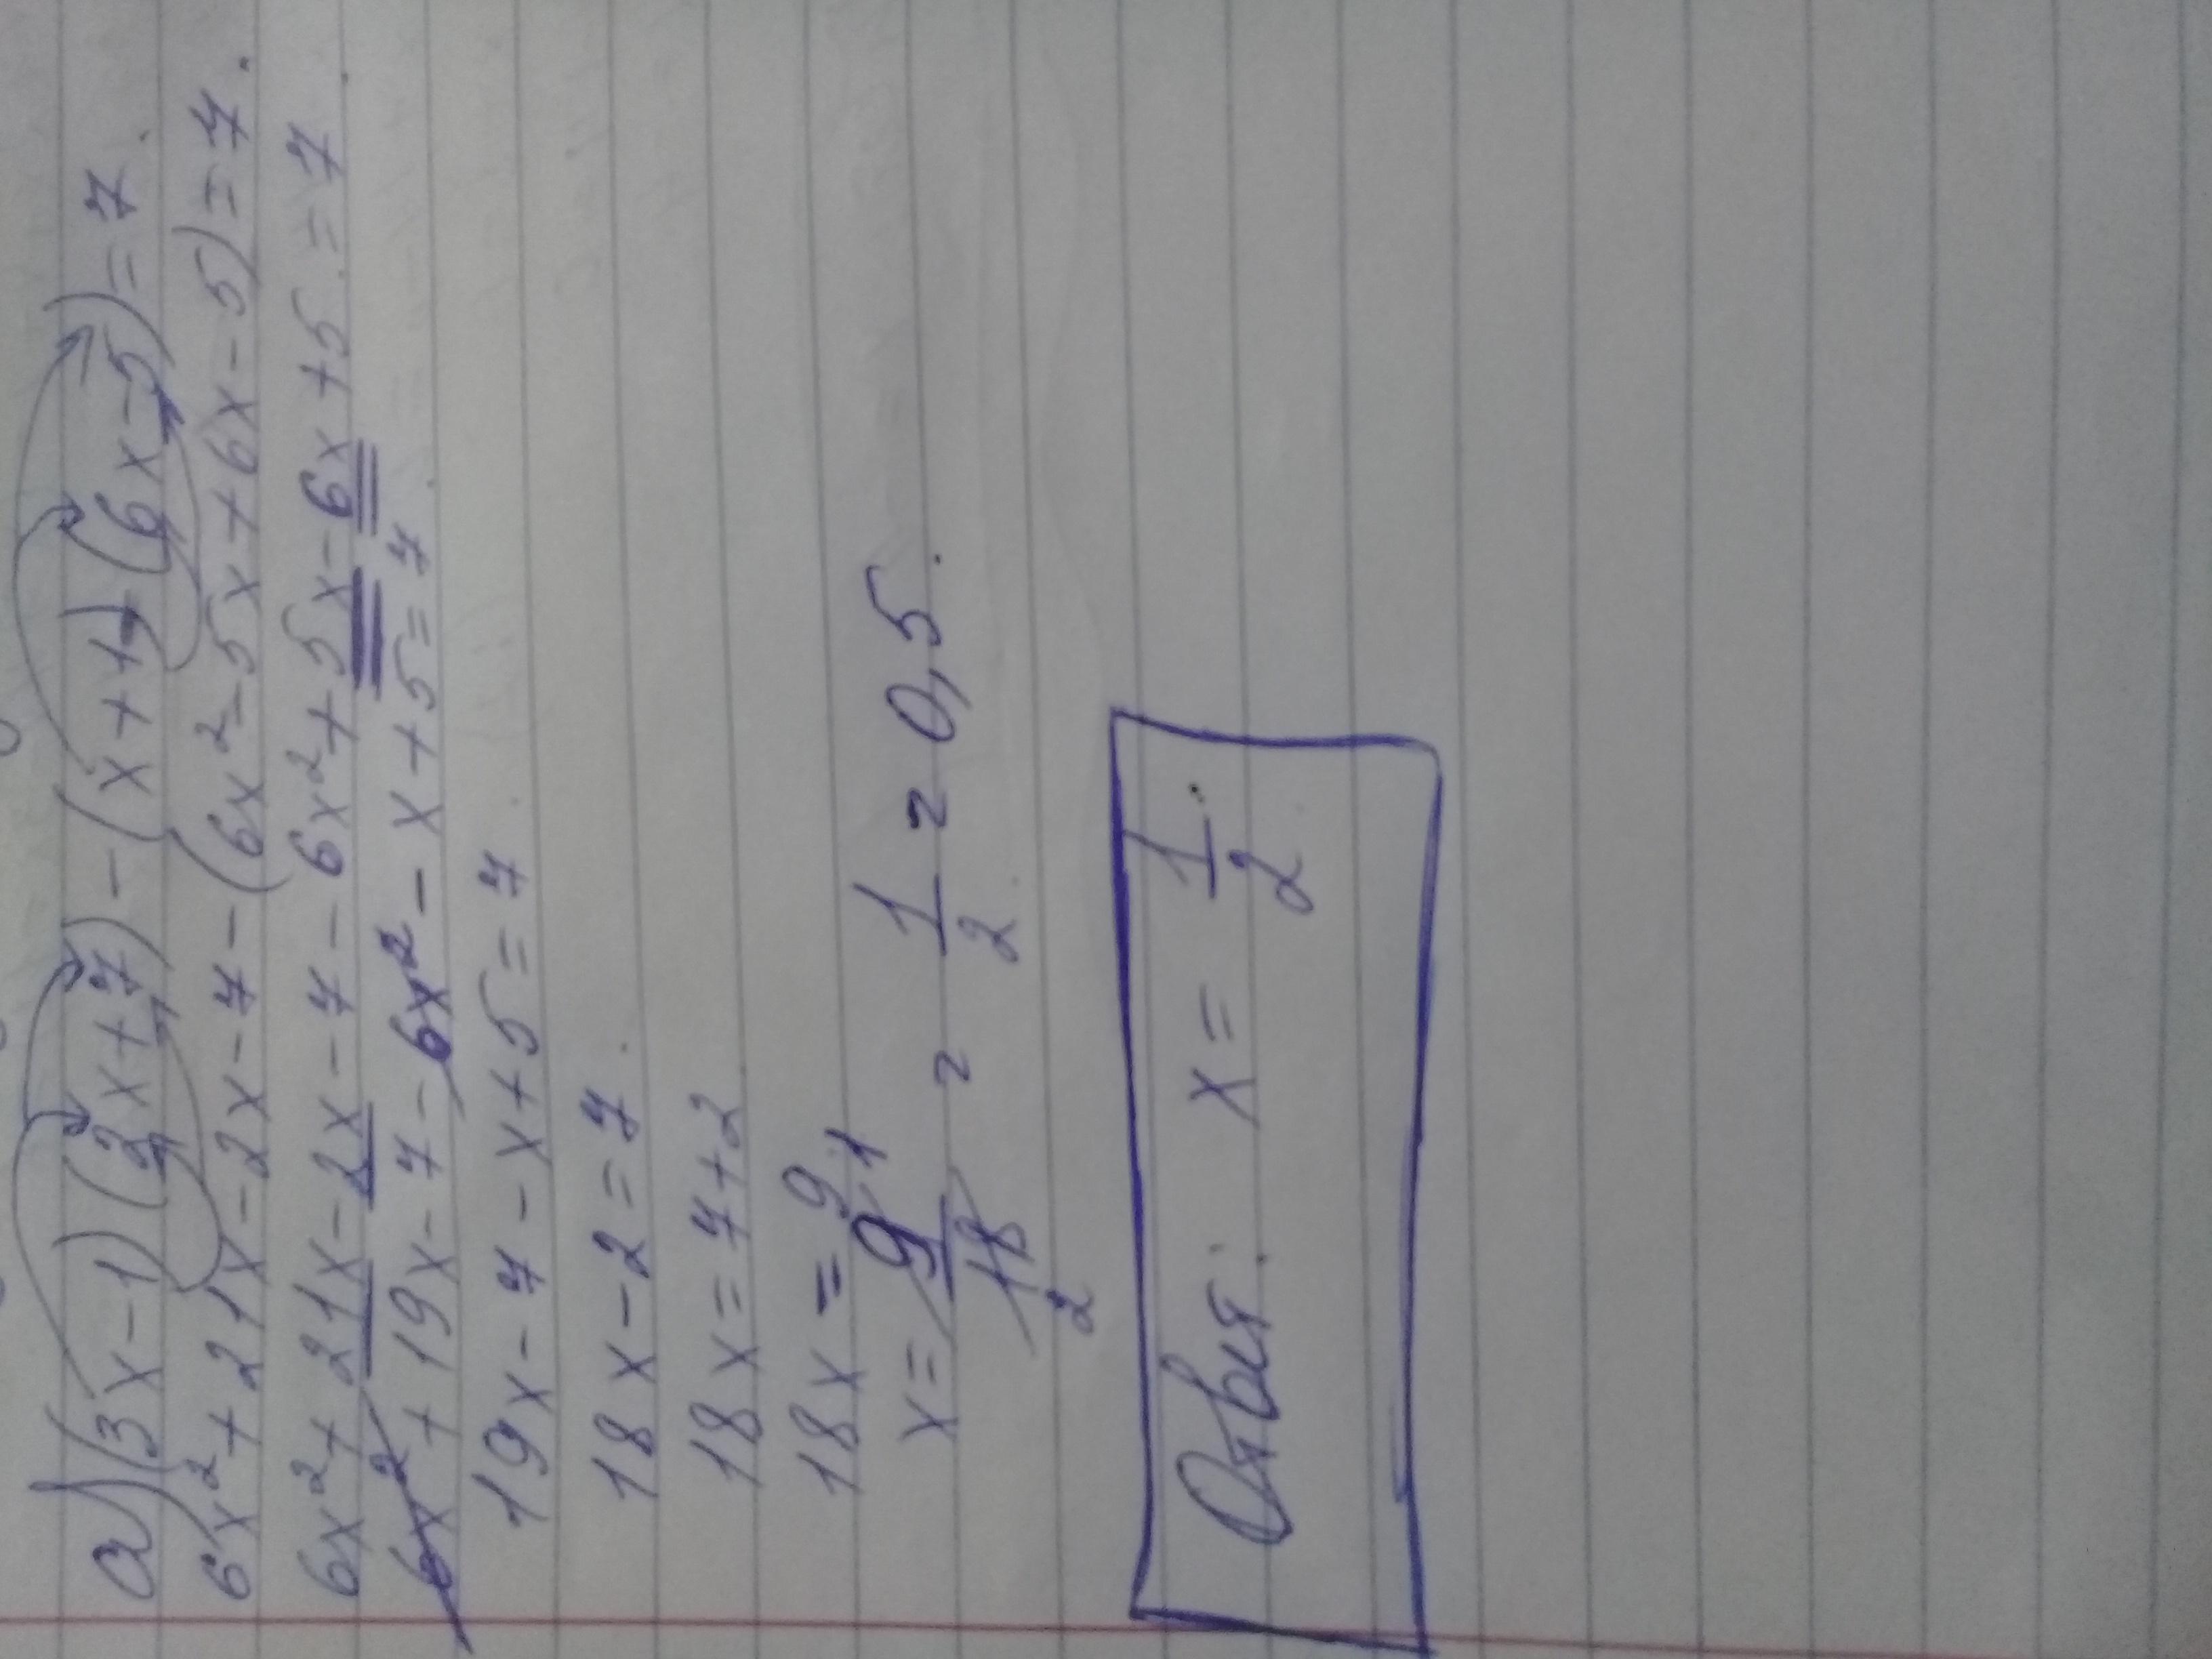 a) (3x-1)(2x+7)-(x+1)(6x-5)=7.
6x²+21x-2x-7-(6x²-5x+6x-5)=7.
6x²+21x-2x-7-6x²+5x-6x+5.=7.
6x²+19x-7-6x²-x+5=7.
19x-7-x+5=7.
18x-2=7.
18x=7+2
18x=9
x= 9 1/18 2 = 1/2 = 0,5.
Ответ: x= 1/2.